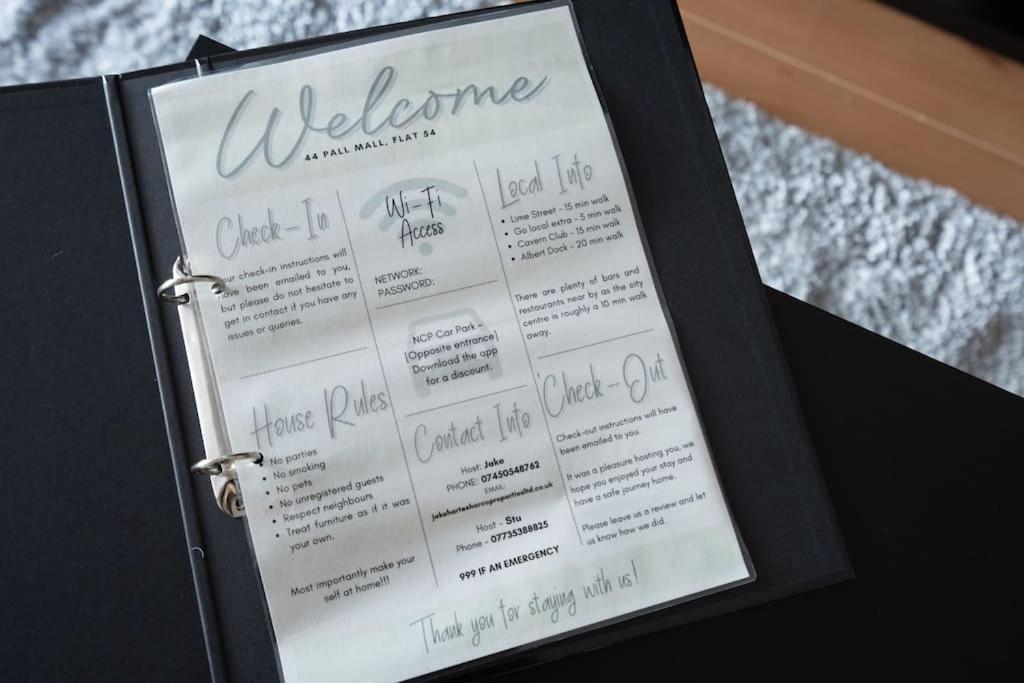 Welcome
44 PALL MALL, FLAT 54
Check-In
our check-in instructions will
have been emailed to you,
but please do not hesitate to
get in contact if you have any
issues or queries.
House Rules
• No parties
• No smoking
• No pets
• No unregistered guests
• Respect neighbours
• Treat furniture as if it was
your own.
Most importantly make your
self at home!!!
Wi-Fi
Access
NETWORK:
PASSWORD:
NCP Car Park -
[Opposite entrance]
Download the app
for a discount.
Contact Info
Host: Jake
PHONE: 07450548762
EMAIL:
Host - Stu
Phone - 07735388825
999 IF AN EMERGENCY
Local Info
• Lime Street - 15 min walk
• Go local extra - 5 min walk
• Cavern Club - 15 min walk
• Albert Dock - 20 min walk
There are plenty of bars and
restaurants near by as the city
centre is roughly a 10 min walk
away.
Check-Out
Check-out instructions will have
been emailed to you.
It was a pleasure hosting you, we
hope you enjoyed your stay and
have a safe journey home.
Please leave us a review and let
us know how we did.
Thank you for staying with us!